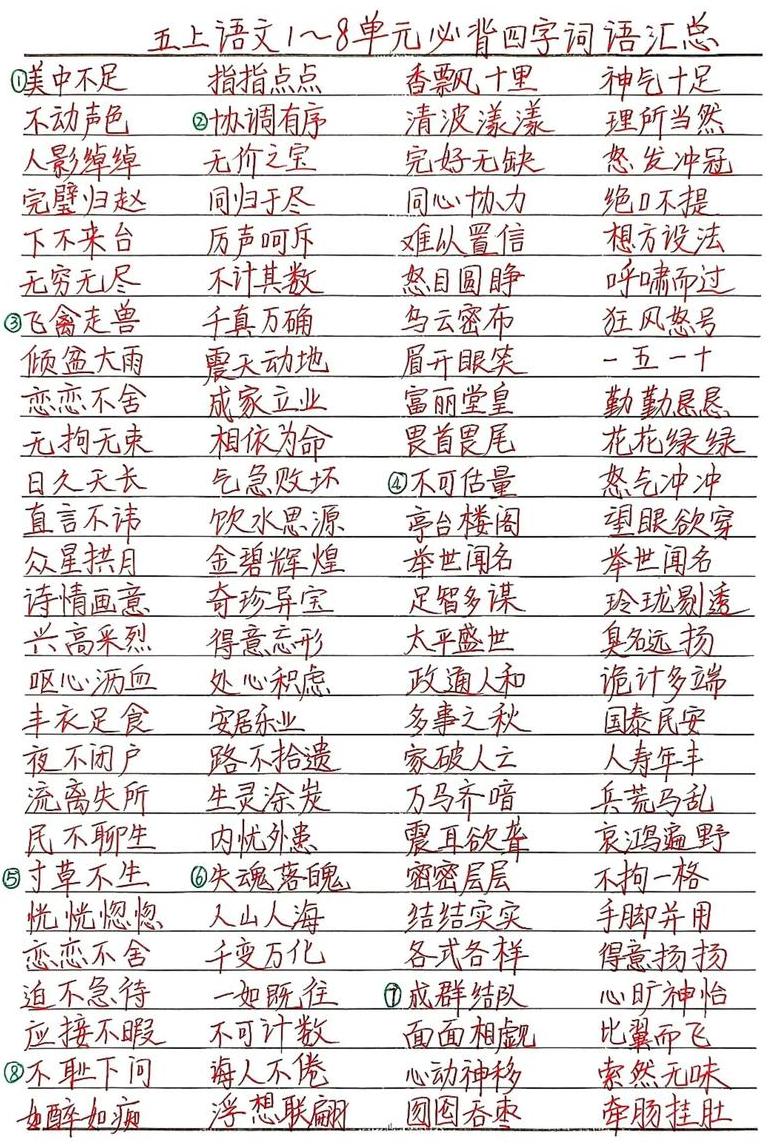 五上语文1～8单元必背四字词语汇总
①美中不足 指指点点 香飘十里 神气十足
不动声色 ②协调有序 清波漾漾 理所当然
人影绰绰 无价之宝 完好无缺 怒发冲冠
完璧归赵 同归于尽 同心协力 绝口不提
下不来台 厉声呵斥 难以置信 想方设法
无穷无尽 不计其数 怒目圆睁 呼啸而过
③飞禽走兽 千真万确 乌云密布 狂风怒号
倾盆大雨 震天动地 眉开眼笑 一五一十
恋恋不舍 成家立业 富丽堂皇 勤勤恳恳
无拘无束 相依为命 畏首畏尾 花花绿绿
日久天长 气急败坏 ④不可估量 怒气冲冲
直言不讳 饮水思源 亭台楼阁 望眼欲穿
众星拱月 金碧辉煌 举世闻名 举世闻名
诗情画意 奇珍异宝 足智多谋 玲珑剔透
兴高采烈 得意忘形 太平盛世 臭名远扬
呕心沥血 处心积虑 政通人和 诡计多端
丰衣足食 安居乐业 多事之秋 国泰民安
夜不闭户 路不拾遗 家破人亡 人寿年丰
流离失所 生灵涂炭 万马齐喑 兵荒马乱
民不聊生 内忧外患 震耳欲聋 哀鸿遍野
⑤寸草不生 ⑥失魂落魄 密密层层 不拘一格
恍恍惚惚 人山人海 结结实实 手脚并用
恋恋不舍 千变万化 各式各样 得意扬扬
迫不急待 一如既往 ⑦成群结队 心旷神怡
应接不暇 不可计数 面面相觑 比翼而飞
⑧不耻下问 诲人不倦 心动神移 索然无味
如醉如痴 浮想联翩 囫囵吞枣 牵肠挂肚